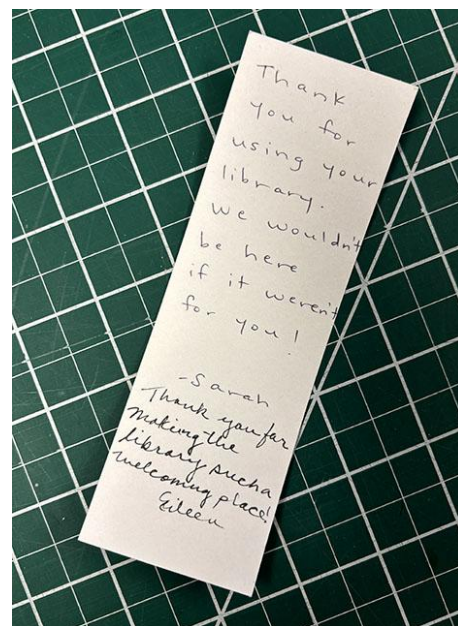 Thank
you for
using your
library.
We wouldn't
be here
if it weren't
for you!
-Sarah
Thank you for
making the
library such a
welcoming place!
Eileen